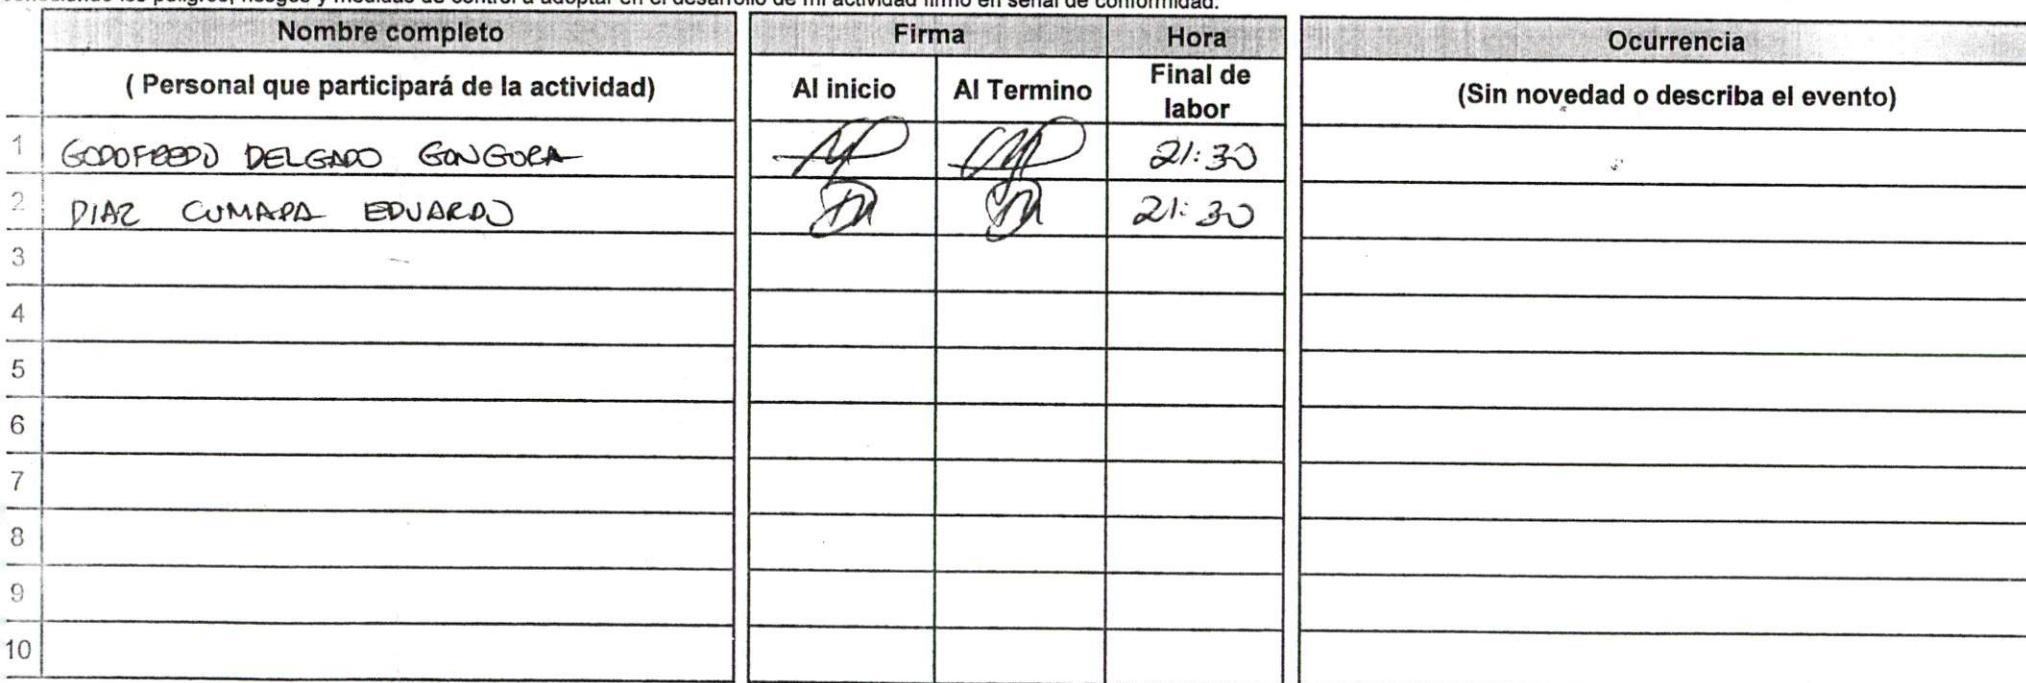 conociendo los peligros, riesgos y medidas de control a adoptar en el desarrollo de mi actividad firmo en señal de conformidad.
Nombre completo Firma Hora Ocurrencia
( Personal que participará de la actividad) Al inicio Al Termino Final de labor (Sin novedad o describa el evento)
1 GODOFREDO DELGADO GONGORA 21:30
2 DIAZ CUMAPA EDUARDO 21:30
3
4
5
6
7
8
9
10